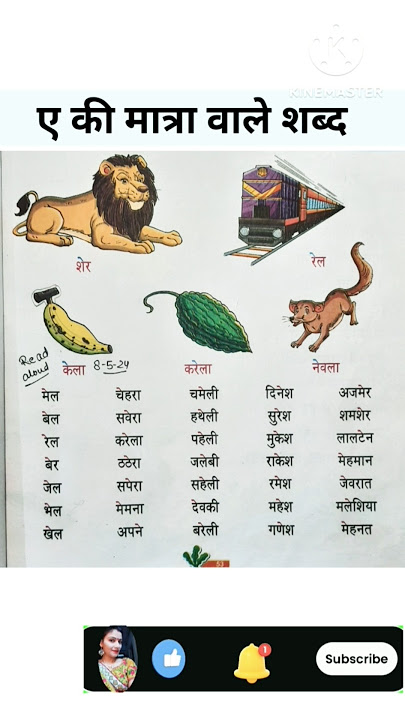 KINEMASTER
ए की मात्रा वाले शब्द
शेर
रेल
Read aloud
केला 8-5-24
करेला
नेवला
मेल चेहरा चमेली दिनेश अजमेर
बेल सवेरा हथेली सुरेश शमशेर
रेल करेला पहेली मुकेश लालटेन
बेर ठठेरा जलेबी राकेश मेहमान
जेल सपेरा सहेली रमेश जेवरात
भेल मेमना देवकी महेश मलेशिया
खेल अपने बरेली गणेश मेहनत
53
1
Subscribe